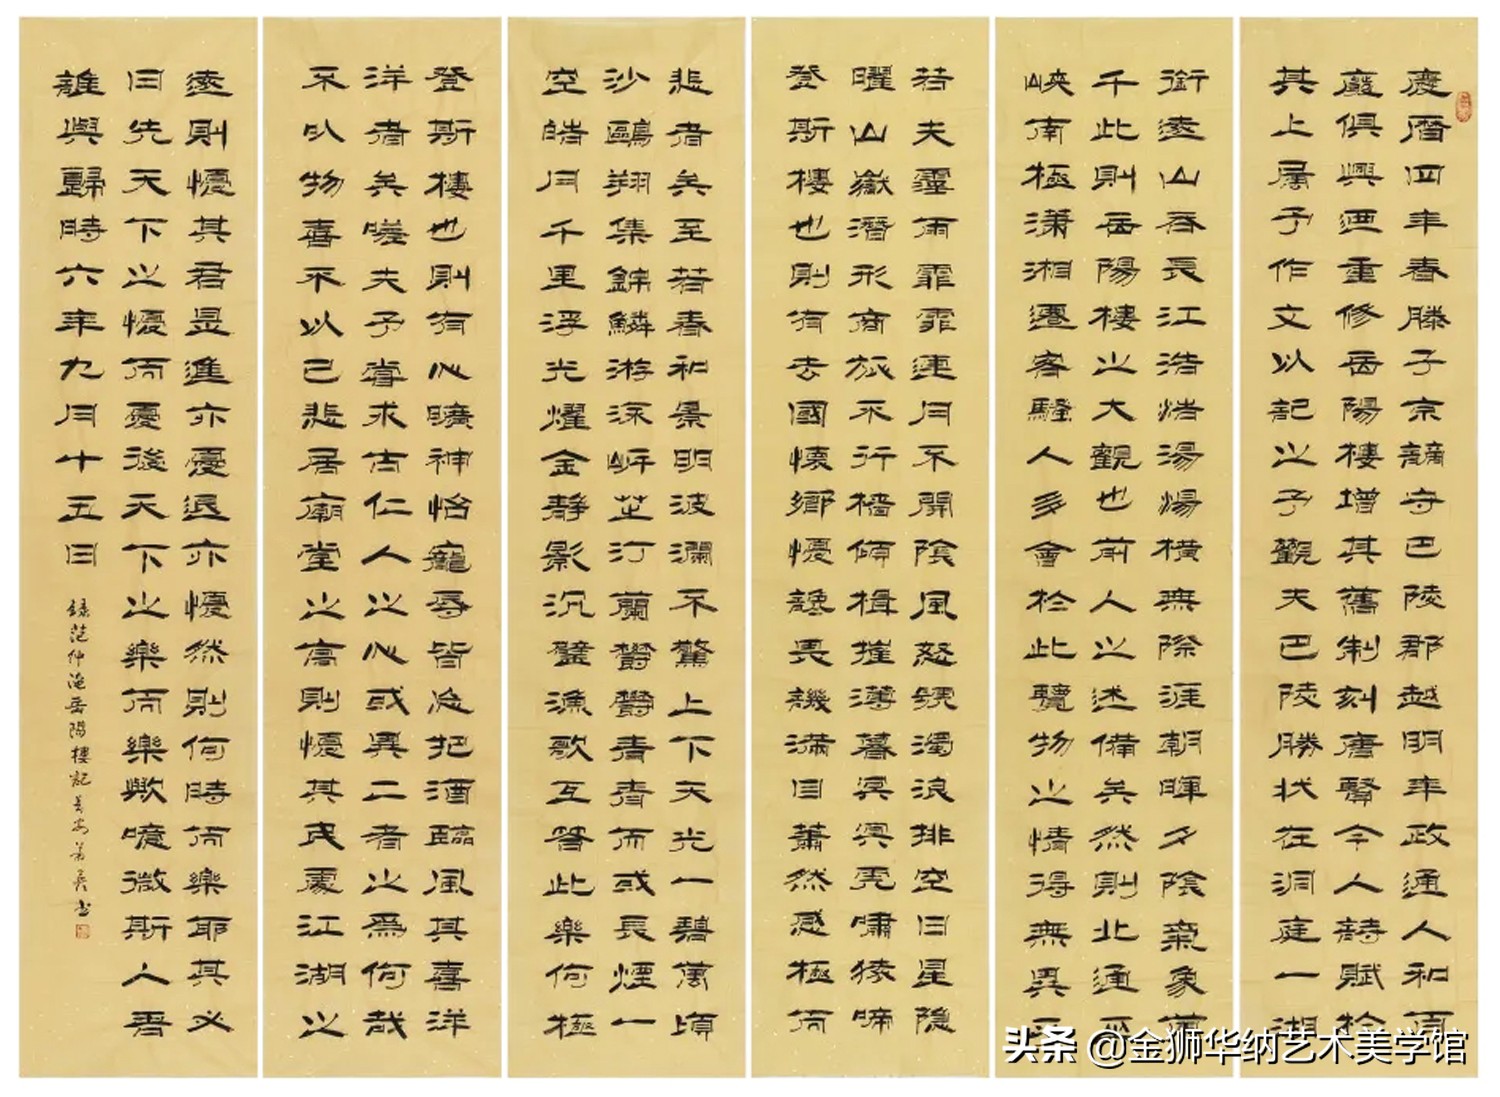 慶曆四年春滕子京謫守巴陵郡越明年政通人和百
廢俱興迺重修岳陽樓增其舊制刻唐賢今人詩賦於
其上屬予作文以記之予觀夫巴陵勝狀在洞庭一湖
銜遠山吞長江浩浩湯湯橫無際涯朝暉夕陰氣象萬
千此則岳陽樓之大觀也前人之述備矣然則北通巫
峽南極瀟湘遷客騷人多會於此覽物之情得無異乎
若夫霪雨霏霏連月不開陰風怒號濁浪排空日星隱
曜山嶽潛形商旅不行檣傾楫摧薄暮冥冥虎嘯猿啼
登斯樓也則有去國懷鄉懮讒畏譏滿目蕭然感極而
悲者矣至若春和景明波瀾不驚上下天光一碧萬頃
沙鷗翔集錦鱗游泳岸芷汀蘭鬱鬱青青而或長煙一
空皓月千里浮光耀金靜影沉璧漁歌互答此樂何極
登斯樓也則有心曠神怡寵辱皆忘把酒臨風其喜洋
洋者矣嗟夫予嘗求古仁人之心或異二者之為何哉
不以物喜不以己悲居廟堂之高則懮其民處江湖之
遠則懮其君是進亦憂退亦懮然則何時而樂耶其必
曰先天下之懮而憂後天下之樂而樂歟噫微斯人吾
誰與歸時六年九月十五日
錄范仲淹岳陽樓記
头条 @金狮华纳艺术美学馆